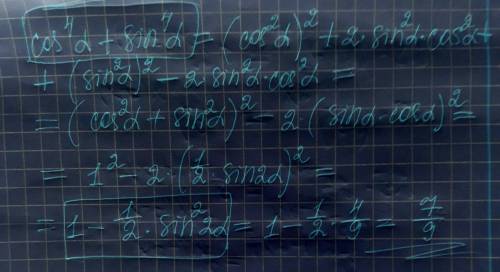 cos⁴α + sin⁴α = (cos²α)² + 2·sin²α·cos²α +
+ (sin²α)² − 2·sin²α·cos²α =
= (cos²α + sin²α)² − 2·(sinα·cosα)² =
= 1² − 2·(1/2·sin2α)² =
= 1 − 1/2·sin²2α = 1 − 1/2·4/9 = 7/9